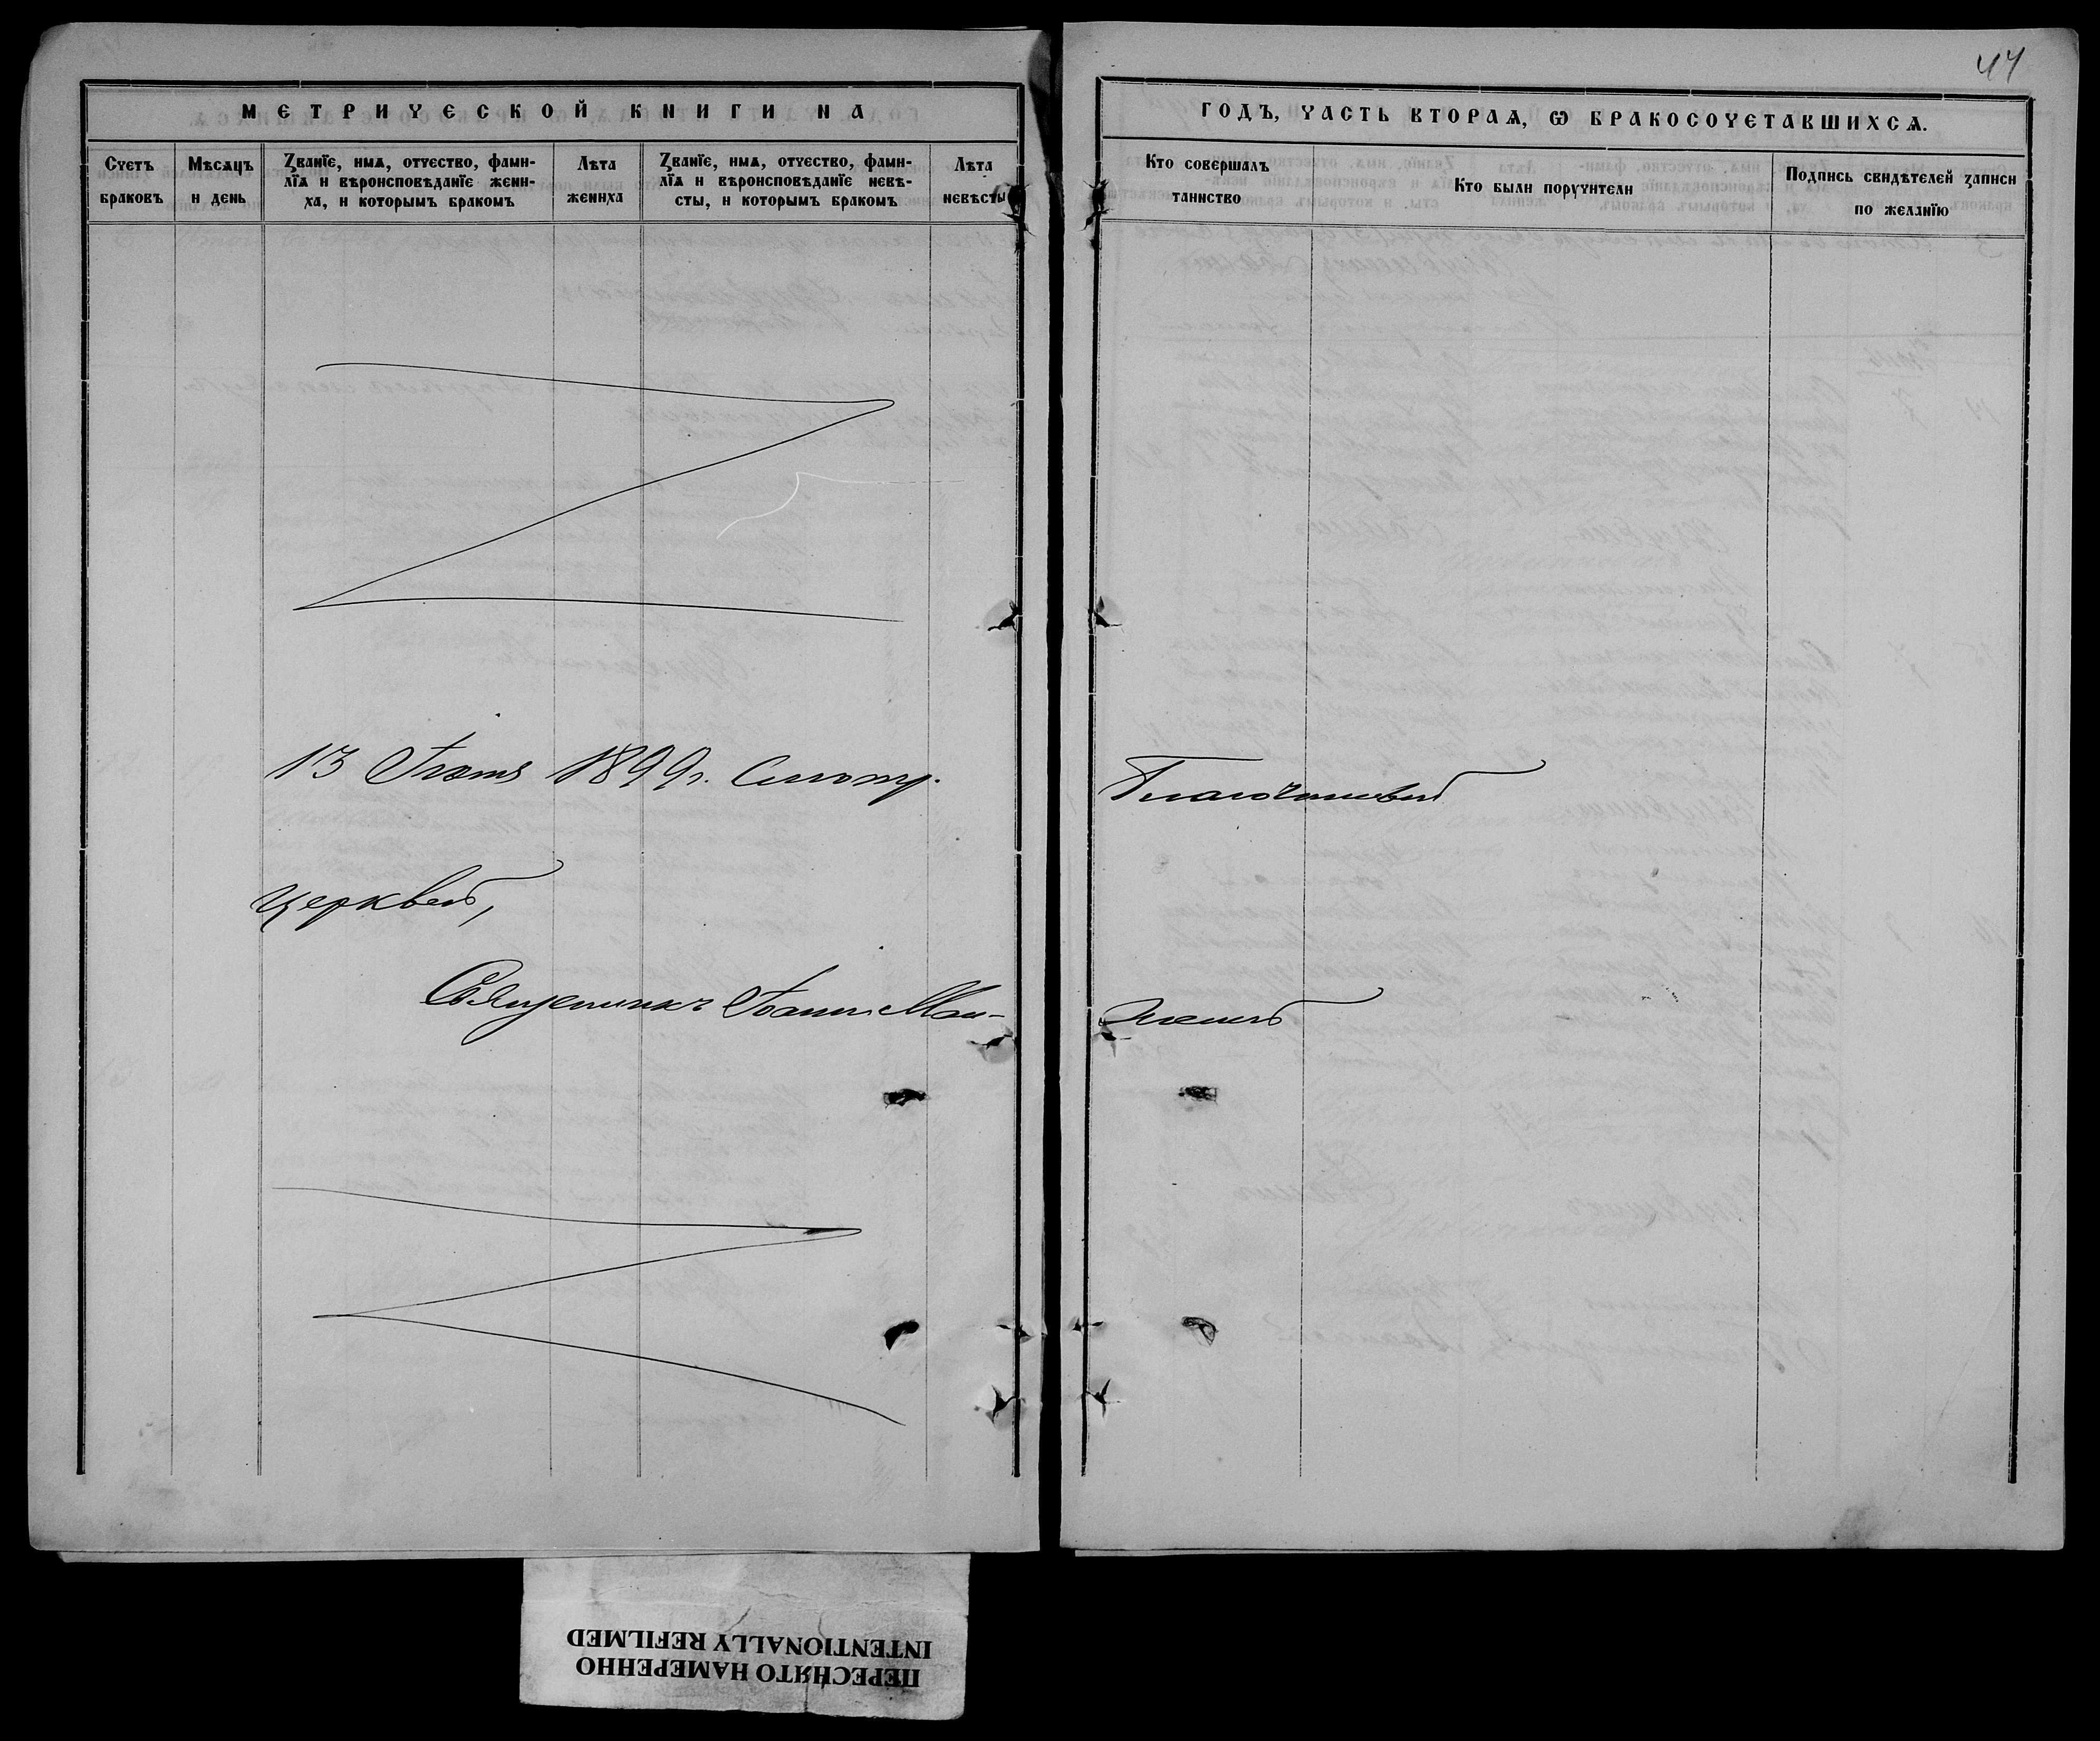 44
МЕТРИЧЕСКОЙ КНИГИ НА
ГОДЪ, ЧАСТЬ ВТОРАЯ, Ѡ БРАКОСОЧЕТАВШИХСЯ.
Счетъ браковъ
Мѣсяцъ и день
Званїе, имя, отчество, фами-
лїя и вѣроисповѣданїе жени-
ха, и которымъ бракомъ
Лѣта жениха
Званїе, имя, отчество, фами-
лїя и вѣроисповѣданїе невѣ-
сты, и которымъ бракомъ
Лѣта невѣсты
Кто совершалъ таинство
Кто были поручители
Подпись свидѣтелей записи по желанїю
13 1899г. Смотр. Благочинный
церквей,
Священникъ Іоаннъ
ПЕРЕСНЯТО НАМЕРЕННО
INTENTIONALLY REFILMED